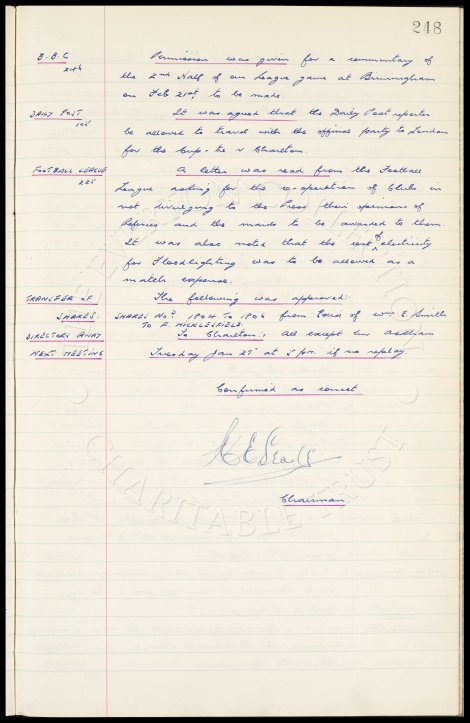 248
B.B.C. Permission was given for a commentary of
the 2nd Half of our League game at Birmingham
on Feb 21st, to be made.
DAILY POST It was agreed that the Daily Post reporter
be allowed to travel with the official party to London
for the Cup-tie v Charlton.
FOOTBALL LEAGUE A letter was read from the Football
League asking for the co-operation of Clubs in
not divulging to the Press their opinions of
Referees and the marks to be awarded to them.
It was also noted that the cost of electricity
for Floodlighting was to be allowed as a
match expense.
TRANSFER OF The following was approved:-
SHARES. SHARES Nos 1904 TO 1906 from Exors of Wm E. Smith
TO F. MICKLESFIELD.
DIRECTORS AWAY To Charlton: All except Mr
NEXT MEETING Tuesday Jan 27 at 5 pm. if no replay
Confirmed as correct
Chairman
EVERTON COLLECTION
CHARITABLE TRUST